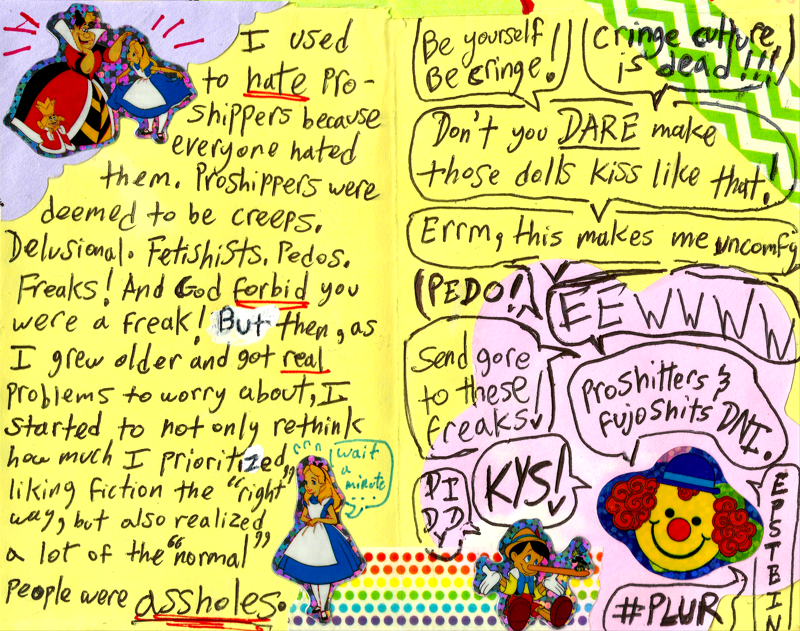 I used
to hate pro-
shippers because
everyone hated
them. Proshippers were
deemed to be creeps.
Delusional. Fetishists. Pedos.
Freaks! And God forbid you
were a freak! But then, as
I grew older and got real
problems to worry about, I
started to not only rethink
how much I prioritized
liking fiction the "right"
way, but also realized
a lot of the "normal"
people were assholes.
wait
a
minute...
Be yourself
Be cringe!
Cringe culture
is dead!!!
Don't you DARE make
those dolls kiss like that!
Errm, this makes me uncomfy
PEDO!
EEWWWW
Send gore
to these
freaks!
Proshitters &
fujoshits DNI.
DI
DD
KYS!
EPSTEIN
#PLUR